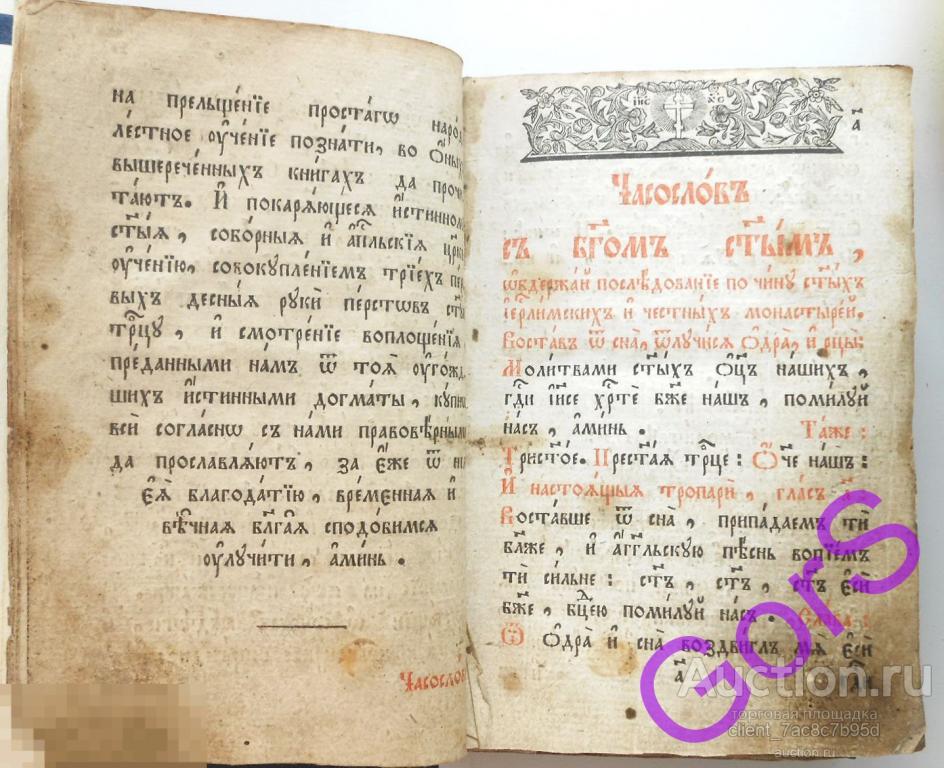 на прельщенїе простагѡ наро́д
ле́стное ᲂу҆че́нїе позна́ти, во ѻ҆́ныхъ
вышерече́нныхъ кни́гахъ да прочи
та́ютъ. И҆ покаря́ющесѧ и҆́стинном
ст҃ыѧ, собо́рныѧ и҆ а҆пⷭ҇льскїѧ цр҃кве
ᲂу҆че́нїю, совокупле́нїемъ трїе́хъ пе́р
выхъ десны́ѧ рꙋки̑ пе́рстѡвъ ст҃ꙋ́
трⷪ҇цꙋ, и҆ смотре́нїе воплоще́нїѧ
пре́данными на́мъ ѿ тоѧ̀ ᲂу҆гожд
шихъ и҆́стинными догма́ты, кꙋ́пнѡ
всѝ согла́снѡ съ на́ми правовѣ́рными
да прославлѧ́ютъ, за є҆́же ѿ
є҆ѧ̀ благода́тїю, вре́меннаѧ и҆
вѣ́чнаѧ бл҃га́ѧ сподо́бимсѧ
ᲂу҆лꙋчи́ти, а҆ми́нь.
Часосло́въ
І҆ИС ХС
а҃
Часосло́въ
съ бг҃омъ ст҃ы́мъ,
ѡ҆бдержа́й послѣ́дованїе по чи́нꙋ ст҃ы́хъ
і҆ерⷭ҇ли́мскихъ и҆ че́стныхъ монастыре́й.
Воста́въ ѿ сна̀, ѿлꙋчи́сѧ ѻ҆дра̀, и҆ рцы̀:
Моли́твами ст҃ы́хъ ѻ҆ц҃ъ на́шихъ,
гдⷭ҇и і҆и҃се хрⷭ҇тѐ бж҃е на́шъ, поми́лꙋй
на́съ, а҆ми́нь. Та́же:
Трист҃о́е. Прест҃а́ѧ трⷪ҇це: Ѻ҆́ч҃е на́шъ:
И҆ настоѧ́щыѧ тропарѝ, гла́съ а҃
Воста́вше ѿ сна̀, припа́даемъ тѝ
бл҃же, и҆ а҆́гг҃льскꙋю пѣ́снь вопїе́мъ
тѝ си́льне: ст҃ъ, ст҃ъ, ст҃ъ є҆сѝ
бж҃е, бцⷣею поми́лꙋй на́съ. Сла́ва:
Ѿ ѻ҆дра̀ и҆ сна̀ воздви́глъ мѧ̀ є҆сѝ
а҃
GorS
Auction.ru
торговая площадка
client_7ac8c7b95d
auction.ru